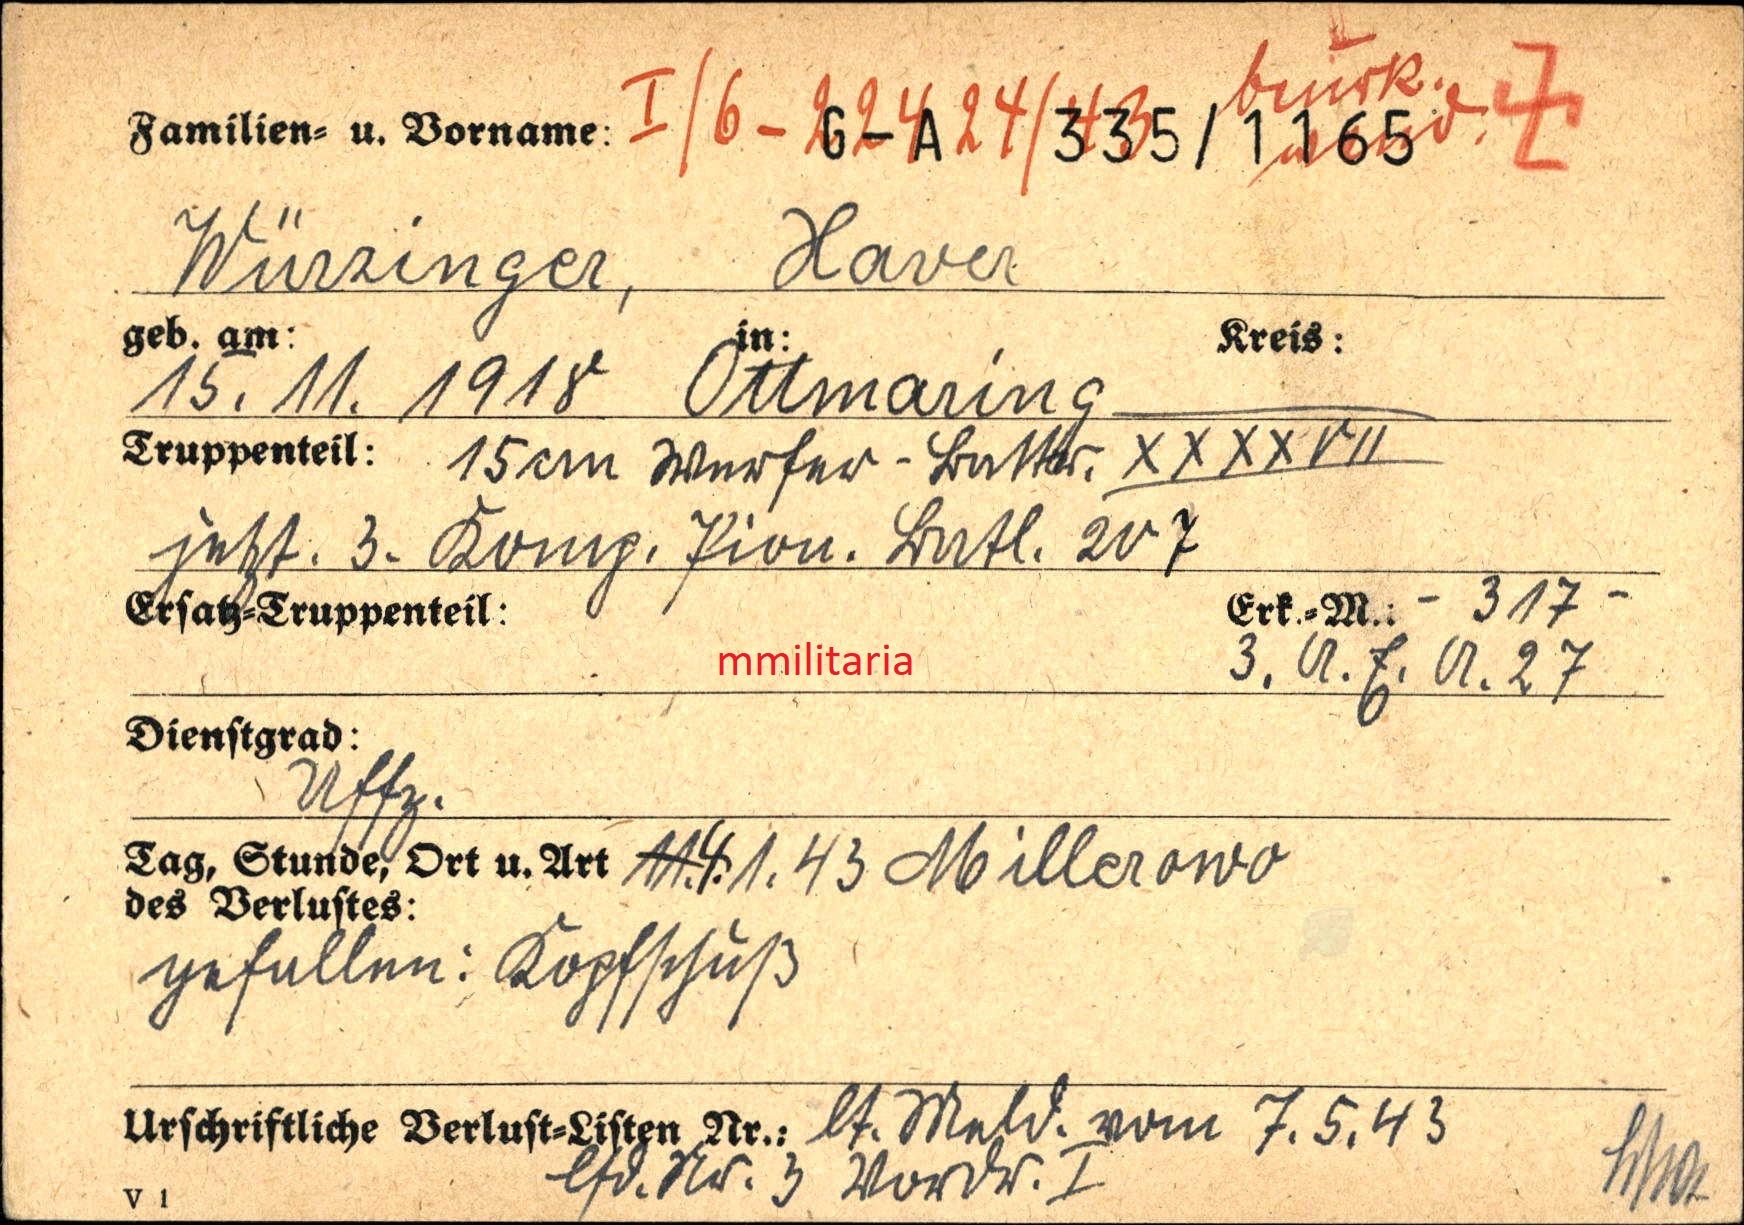 I/6 - 22424/43 beurk.
Familien- u. Vorname: G-A 335/1165
Würzinger, Xaver
geb. am: in: Kreis:
15. 11. 1918 Ottmaring
Truppenteil: 15 cm Werfer-Battr. XXXXVII
jetzt. 3. Komp. Pion. Batl. 207
Ersatz-Truppenteil: Erk.-M.: - 317 -
mmilitaria
3. A. E. A. 27
Dienstgrad:
Uffz.
Tag, Stunde, Ort u. Art 4.1.43 Millerowo
des Verlustes:
gefallen: Kopfschuß
Urschriftliche Verlust-Listen Nr.: lt. Meld. vom 7.5.43
lfd. Nr. 3 Vordr. I
V 1